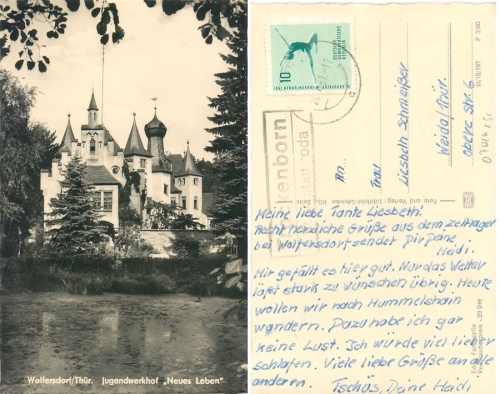 Wolfersdorf/Thür. Jugendwerkhof „Neues Leben"
10
DEUTSCHE
DEMOKRATISCHE
REPUBLIK
kenborn
roda
An...
Frau
Liesbeth Schmeißer
Weida/Thür.
obere Str. 6
Meine liebe Tante Liesbeth!
Recht herzliche Grüße aus dem Zeltlager
bei Wolfersdorf sendet Dir Deine
Heidi.
Mir gefällt es hier gut. Nur das Wetter
läßt stark zu wünschen übrig. Heute
wollen wir nach Hummelshain
wandern. Dazu habe ich gar
keine Lust. Ich würde viel lieber
schlafen. Viele liebe Grüße an alle
anderen. Tschüs, Deine Heidi
Echte Fotografie